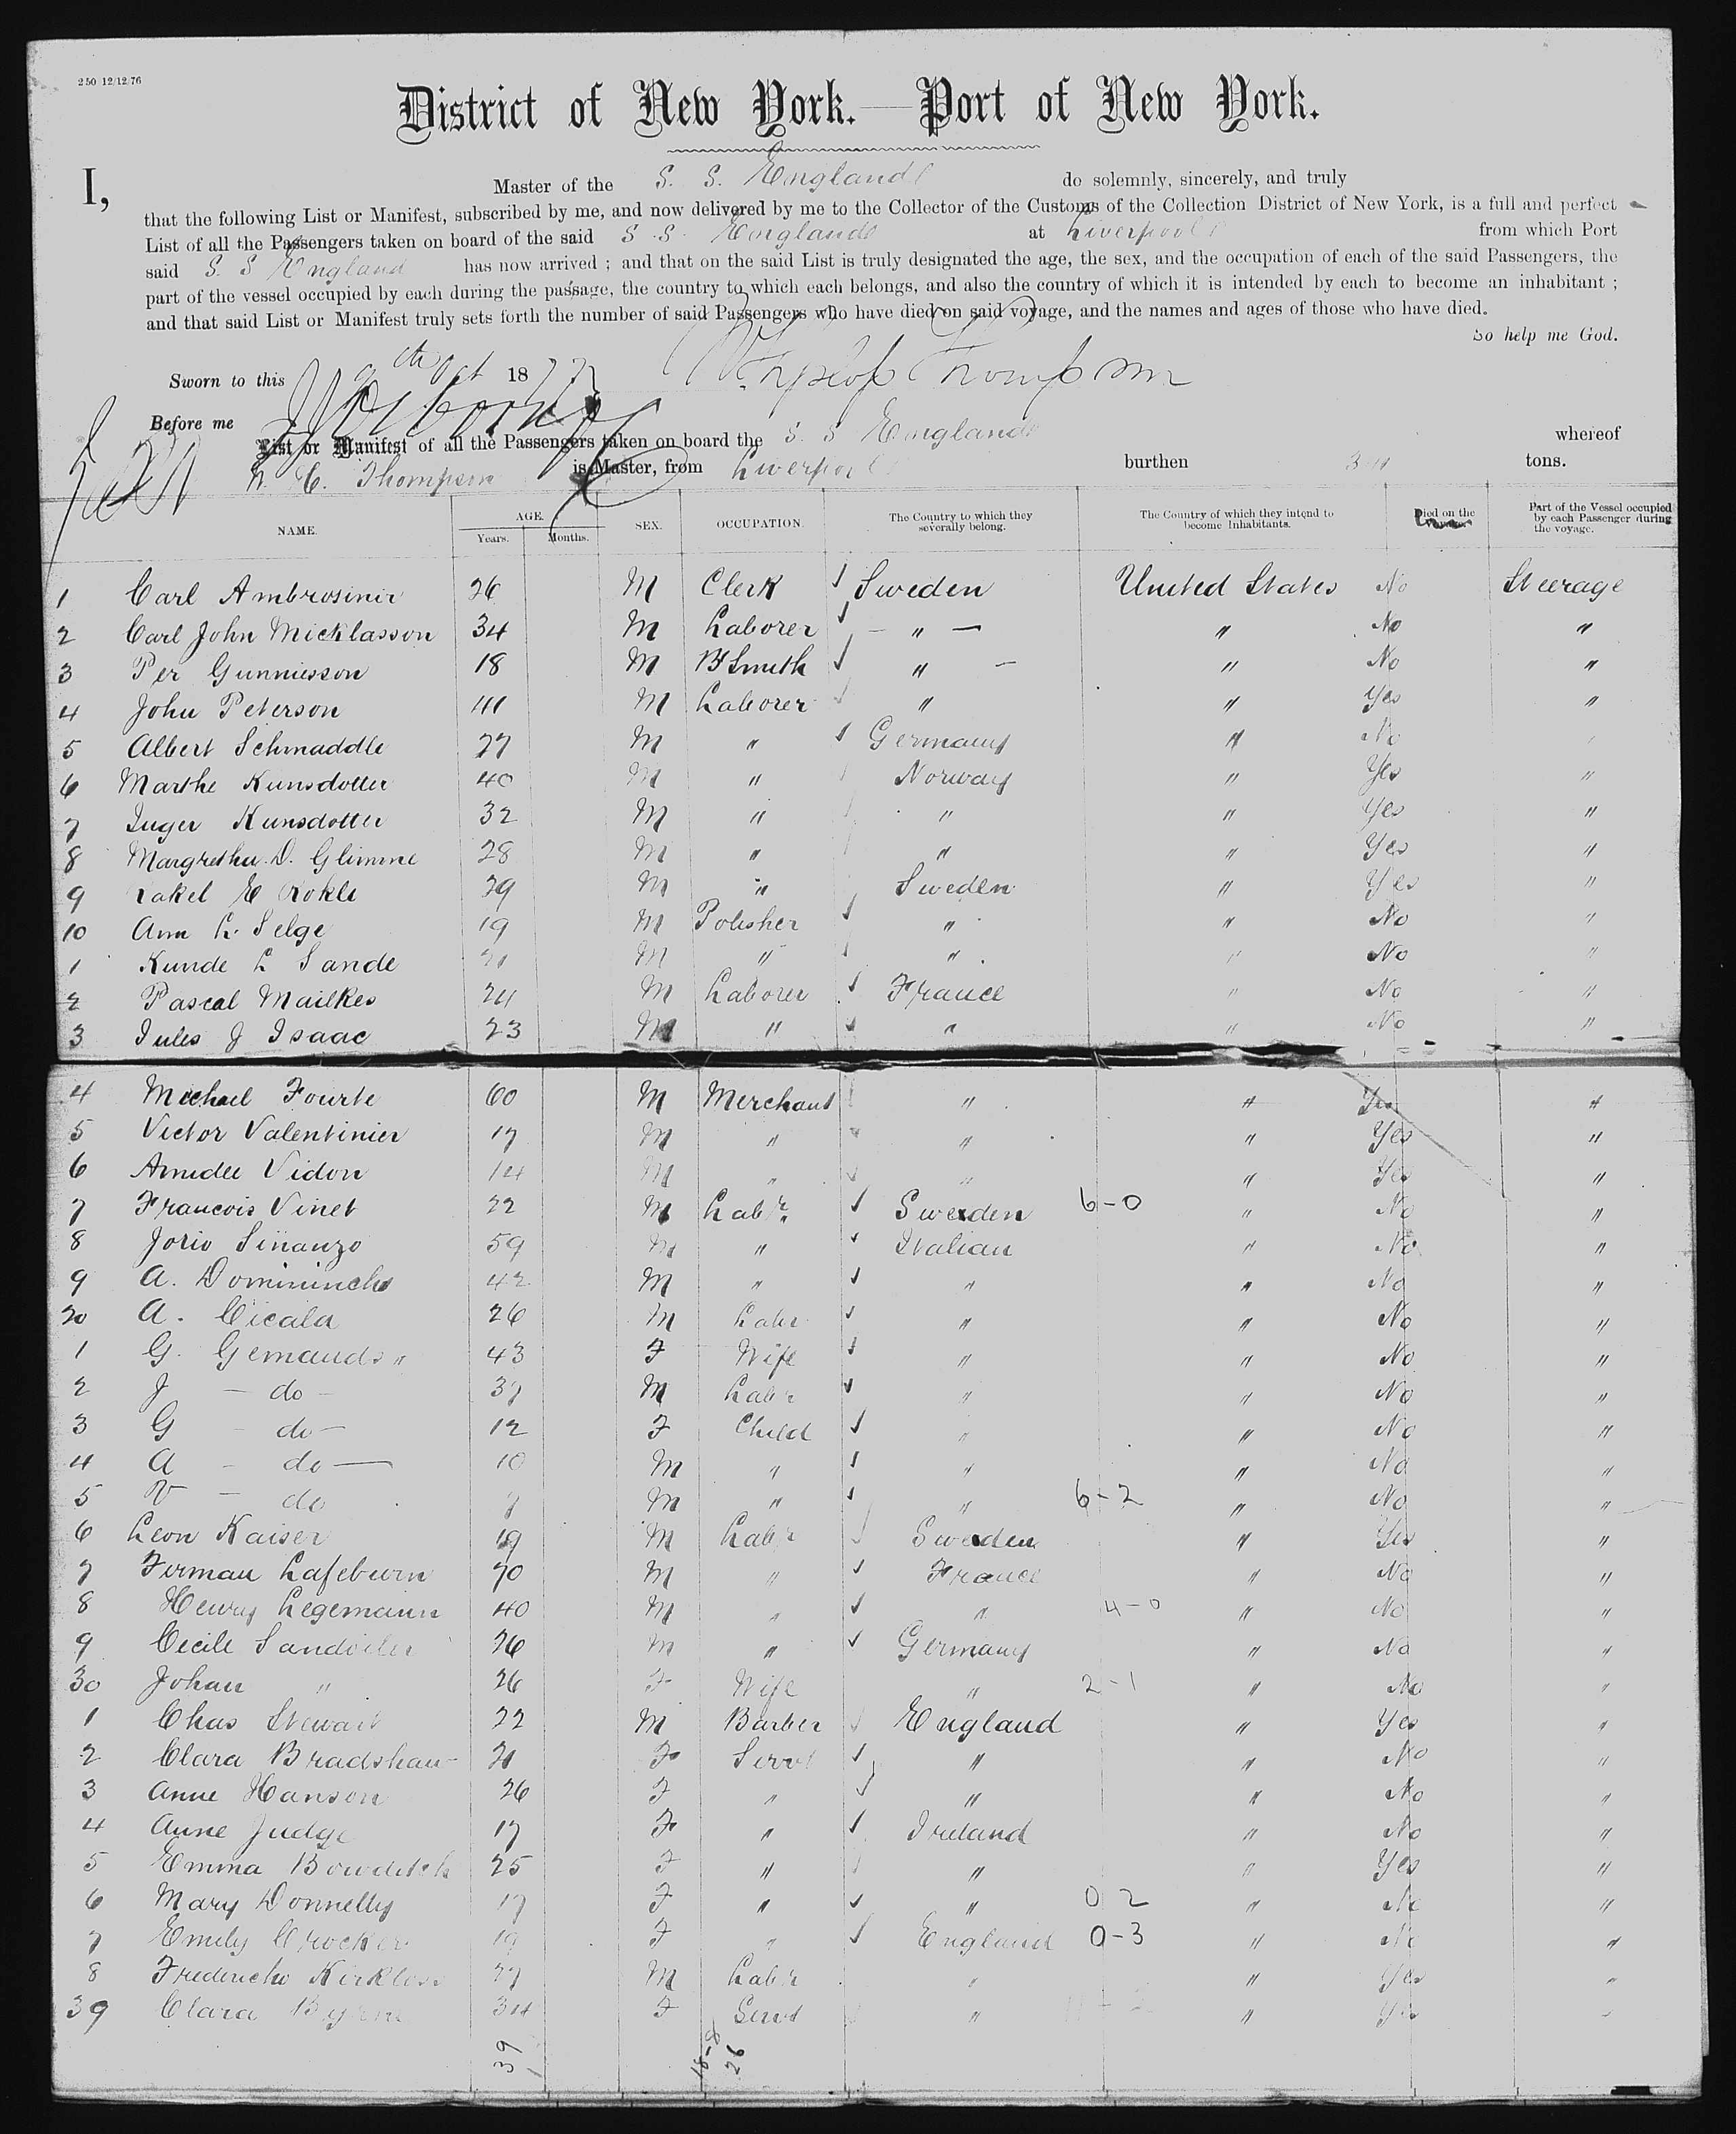 250 12/12/76
District of New York.—Port of New York.
I, Master of the S. S. England do solemnly, sincerely, and truly
that the following List or Manifest, subscribed by me, and now delivered by me to the Collector of the Customs of the Collection District of New York, is a full and perfect
List of all the Passengers taken on board of the said S. S. England at Liverpool from which Port
said S. S England has now arrived ; and that on the said List is truly designated the age, the sex, and the occupation of each of the said Passengers, the
part of the vessel occupied by each during the passage, the country to which each belongs, and also the country of which it is intended by each to become an inhabitant ;
and that said List or Manifest truly sets forth the number of said Passengers who have died on said voyage, and the names and ages of those who have died.
So help me God.
Sworn to this 9th Oct 1877 Thompson
Before me
List or Manifest of all the Passengers taken on board the S. S England whereof
Thompson is Master, from Liverpool burthen tons.
NAME. AGE. Years. Months. SEX. OCCUPATION. The Country to which they severally belong. The Country of which they intend to become Inhabitants. Died on the Part of the Vessel occupied by each Passenger during the voyage.
1 Carl Ambrosinir 26 M Clerk Sweden United States No Steerage
2 Carl John Micklasson 34 M Laborer — " — " No "
3 Per Gunniesson 18 M BSmith " — " No "
4 John Peterson 41 M Laborer " " Yes "
5 Albert Schmaddle 27 M " Germany " No
6 Marthe Kunsdotter 40 M " Norway " Yes "
7 Inger Kunsdotter 32 M " " " Yes "
8 Margretha D. Glimme 28 M " " " Yes "
9 Rakel E Rokle 29 M " Sweden " Yes "
10 Ann L. Selge 19 M Polisher " " No "
1 Kunde L Sande 21 M " " " No "
2 Pascal Mailkes 24 M Laborer France " No "
3 Jules J Isaac 23 M " " " No "
4 Michael Fourte 60 M Merchant " " Yes "
5 Victor Valentinier 17 M " " " Yes "
6 Amedee Vidon 14 M " " " Yes "
7 Francois Vinet 22 M Labr. Sweden 6-0 " No "
8 Jorio Sinanzo 59 M " Italian " No "
9 A. Domininchs 42 M " " " No "
20 A. Cicala 26 M Labr " " No "
1 G. Gemauds " 43 F Wife " " No "
2 J — do — 37 M Labr " " No "
3 G — do — 12 F Child " " No "
4 A — do — 10 M " " " No "
5 V — do 7 M " " 6-2 " No "
6 Leon Kaiser 19 M Labr Sweden " Yes "
7 Firman Lafeburn 70 M " France " No "
8 Henry Legemann 40 M " " 4-0 " No "
9 Cecile 26 M " Germany " No "
30 Johan " 26 F Wife " 2-1 " No "
1 Chas Stewart 22 M Barber England " Yes "
2 Clara Bradshaw 21 F Servt " " No "
3 Anne Hanson 26 F " " " No "
4 Anne Judge 17 F " Ireland " No "
5 Emma Bowditch 25 F " " " Yes "
6 Mary Donnelly 17 F " " 0 2 " No "
7 Emily Crocker 19 F " England 0-3 " No "
8 Fredericho 27 M Labr " " Yes "
39 Clara 34 F Servt " " Yes
39
18-8
26